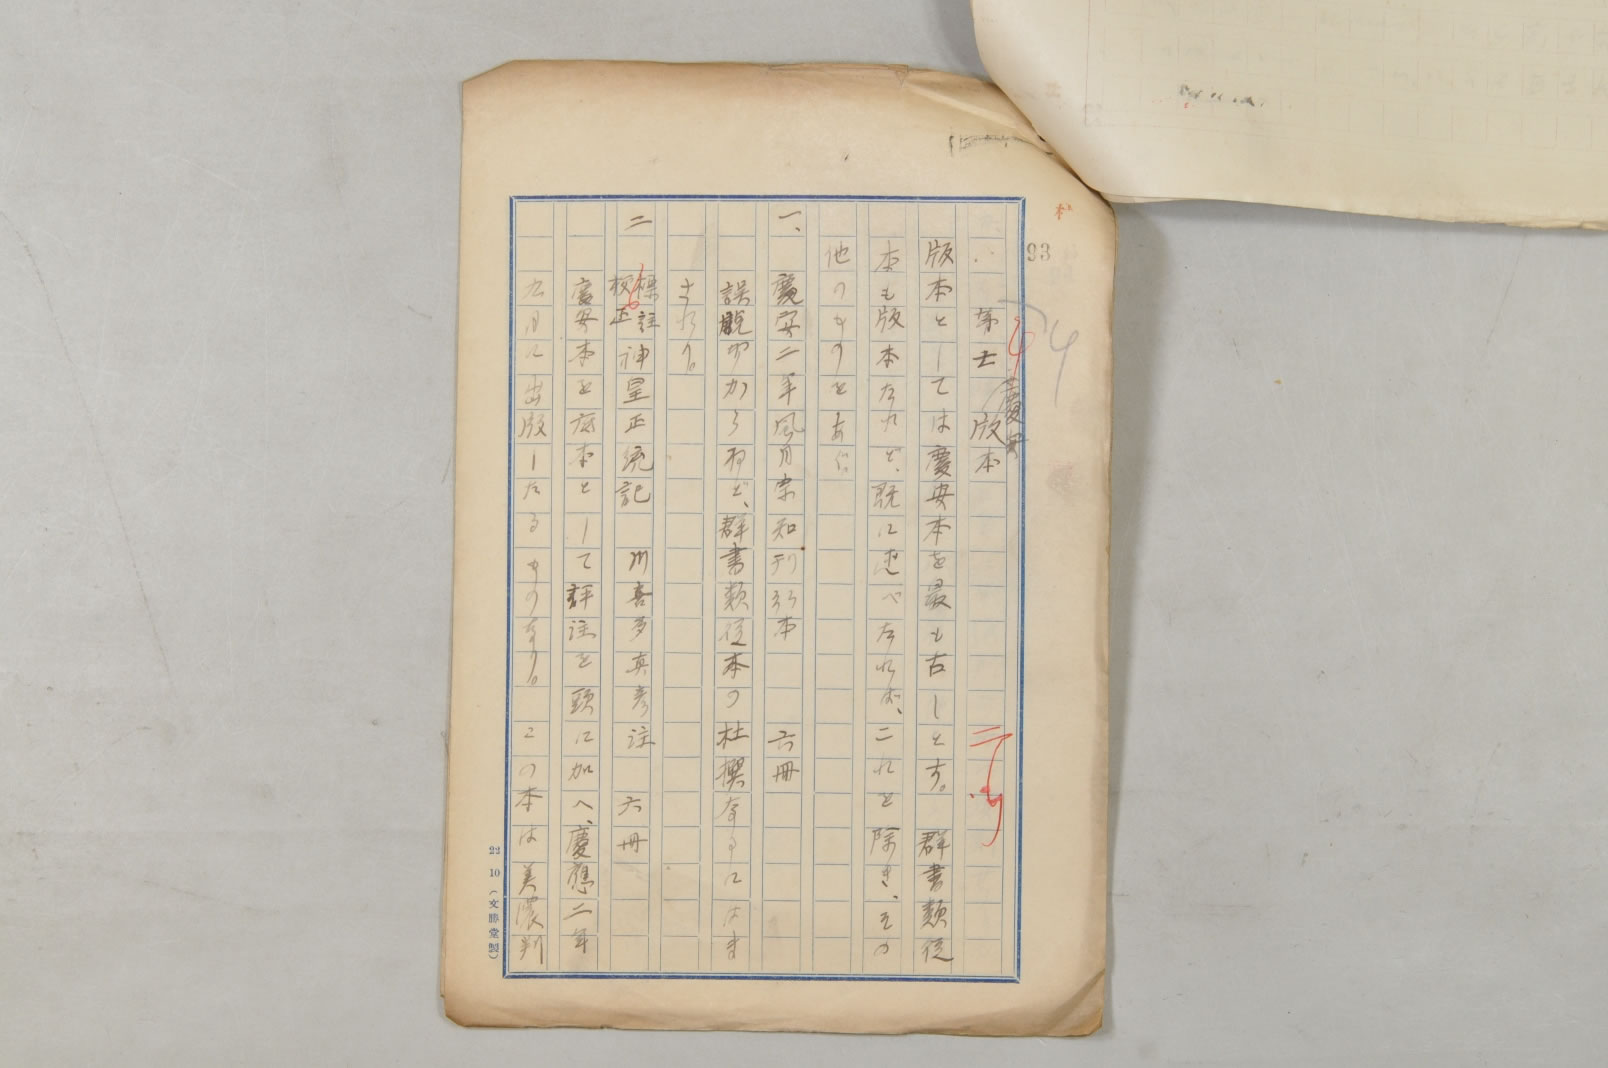 93
第士 版本
慶安
版本としては慶安本を最も古しとす。群書類従
本も版本なれど、既に述べたれば、これを除き、その
他のものをあぐ。
一、慶安二年風月宗知刊行本 六冊
誤脱少からねど、群書類従本の杜撰なるにはま
されり。
二 標註校正神皇正統記 川喜多真彦注 六冊
慶安本を底本として評注を頭に加へ、慶應二年
九月に出版したるものなり。この本は美濃判
22 10 (文勝堂製)